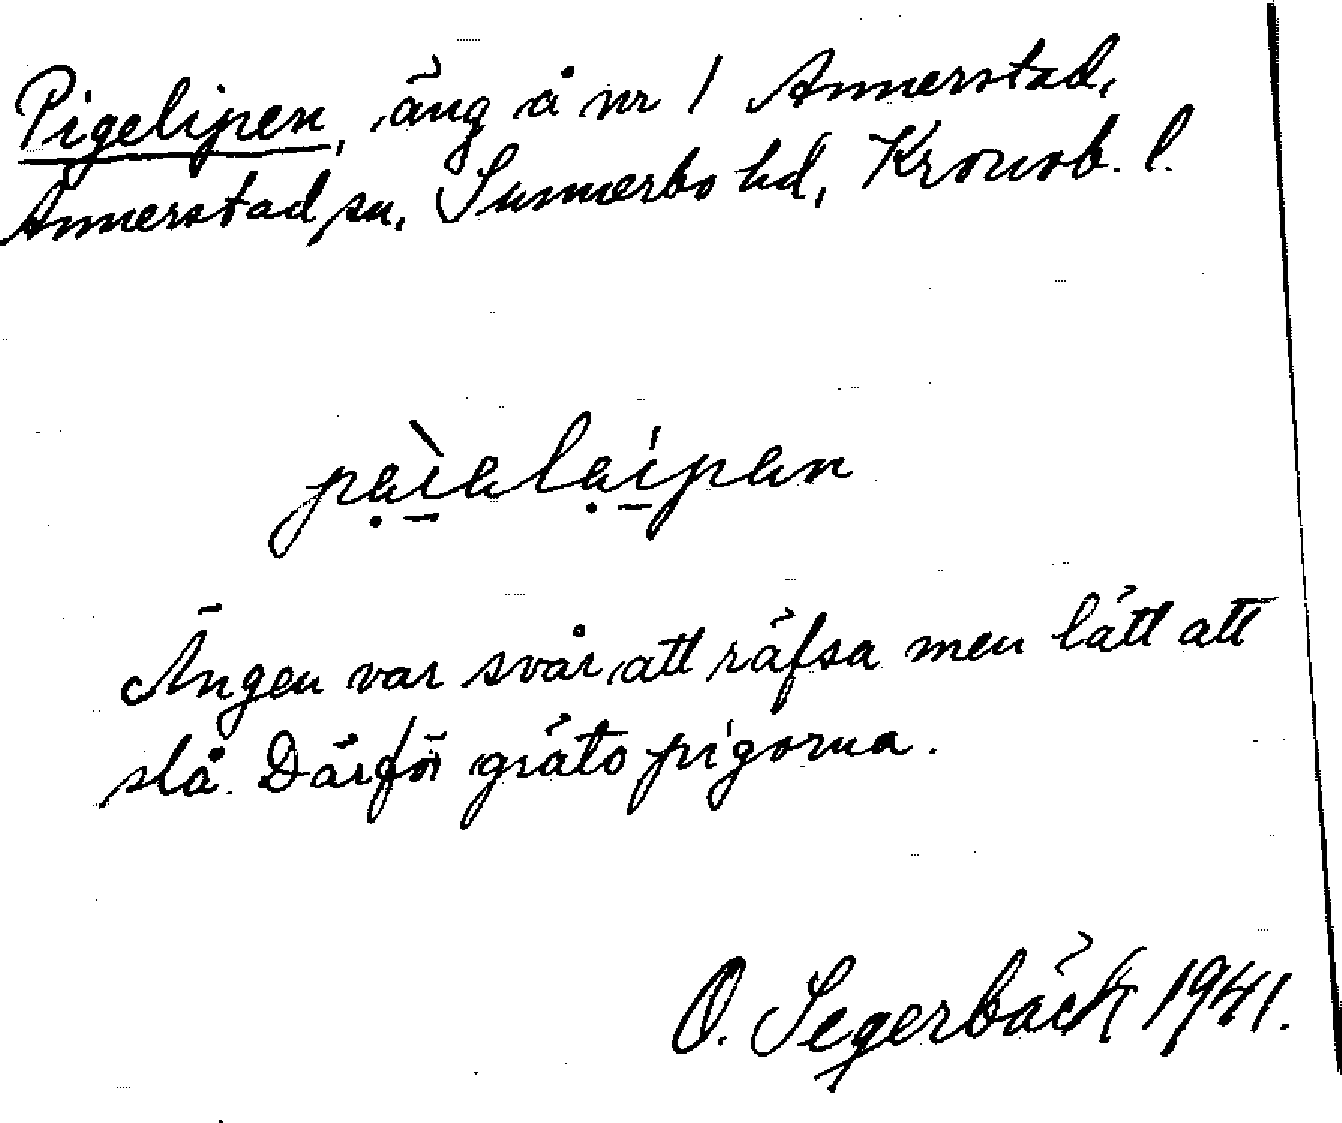 Pigelipen, äng å nr 1 Annerstad,
Annerstad sn, Sunnerbo hd, Kronob. l.
pại̠ɑlại̠pɑn
Ängen var svår att räfsa men lätt att
slå. Därför gräto pigorna.
O. Segerbäck 1941.